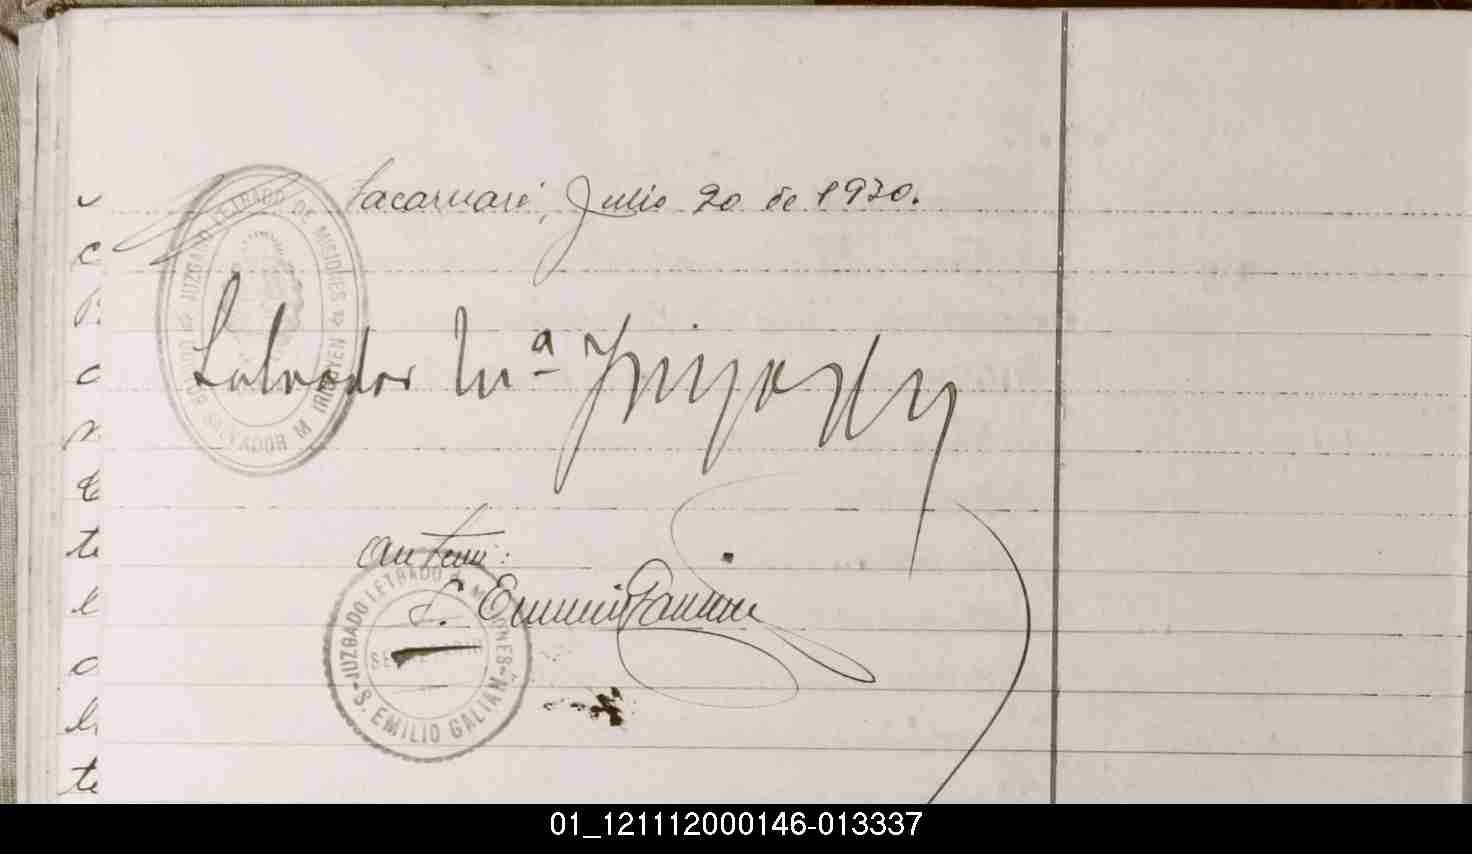 Tacaruaré, Julio 20 de 1920.
JUZGADO LETRADO DE MISIONES
DOCTOR SALVADOR M IRIGOYEN
Salvador Mª Irigoyen
ante mi:
S. Emilio Galian
JUZGADO LETRADO MISIONES
S. EMILIO GALIAN
01_121112000146-013337